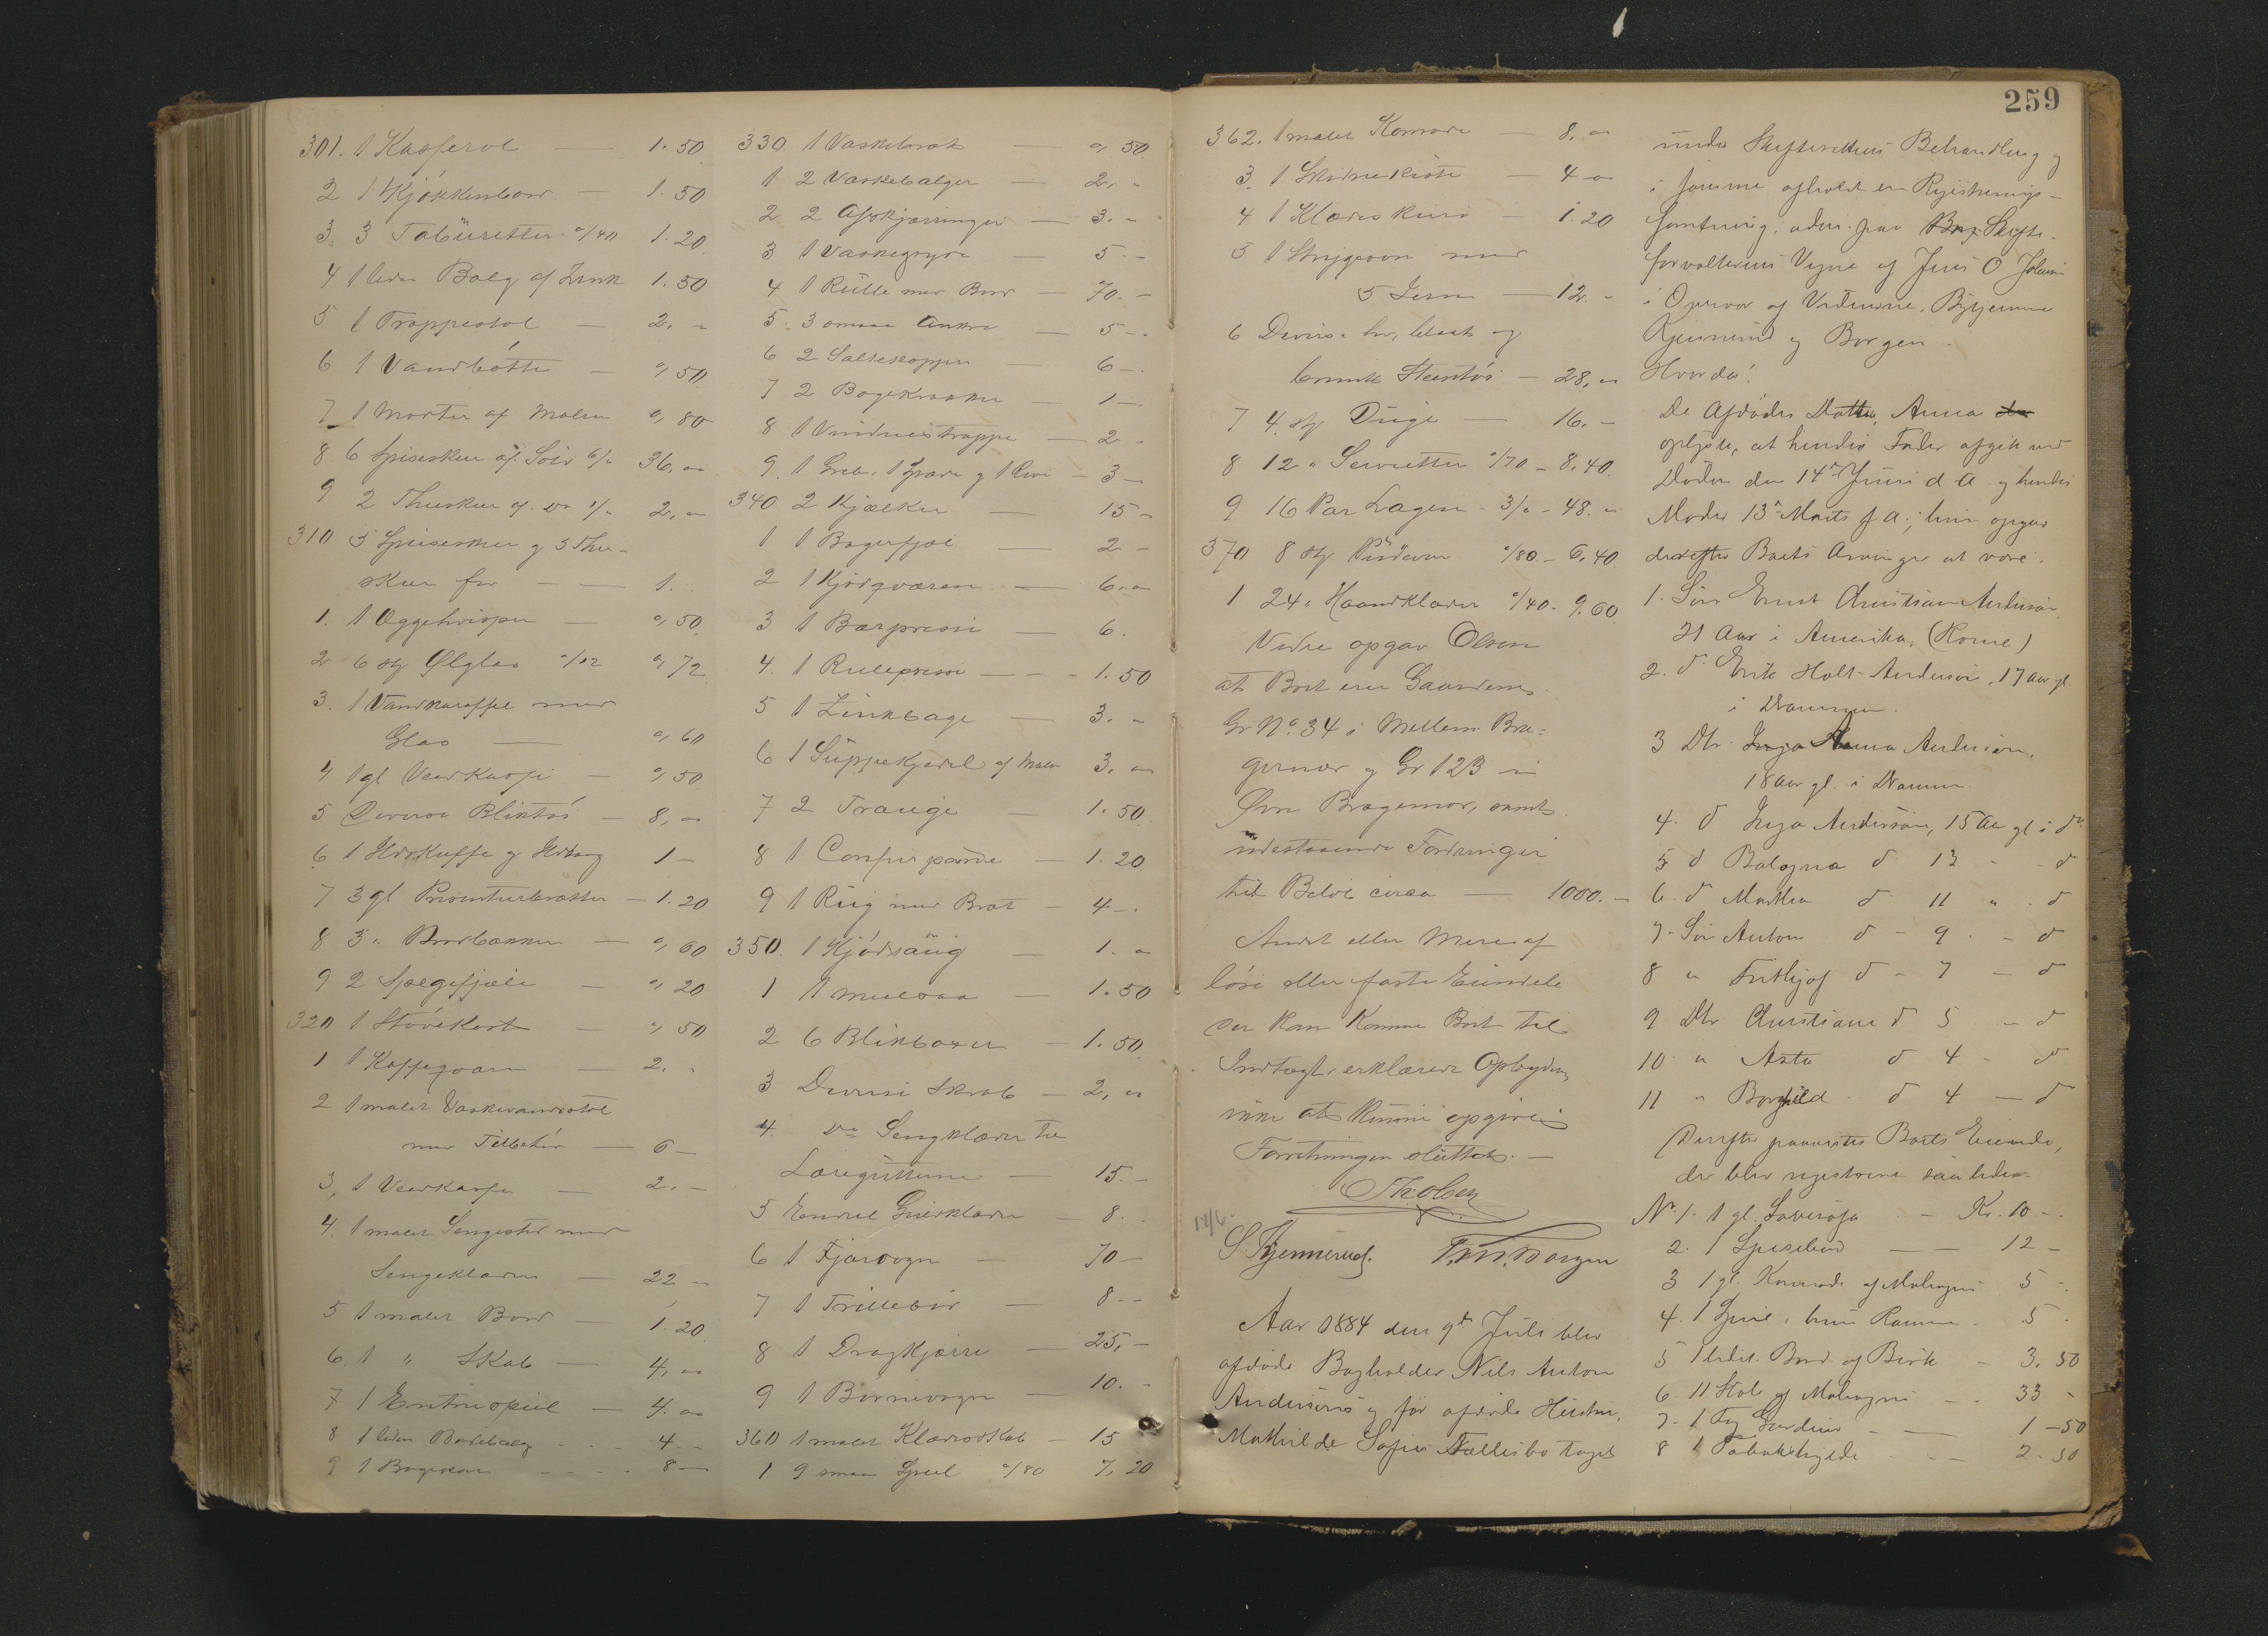 301. 1 Kasserol — 1.50
2 1 Kjøkkenbord — 1.50
3. 3 Tabüretter a/40 1.20
4 1 liden Balg af Zink 1.50
5 1 Trappestol — 2,-
6 1 Vandbøtte — ",50
7 1 Morter af Malm ",80
8 6 Spiseskeer af Sølv 6/" 36,"
9 2 Theskeer af do 1/" 2,"
310 3 Spiseskeer og 3 The-
skeer for — — 1.
1. 1 Æggehvisper — ",50
2 6 st Ølglas "/12 ",72
3. 1 Vandkaraffel med
Glas — ",60
4 1 gl Vedkasse — ",50
5 Diverse Bliktøi — 8,"
6 1 Ildskuffe og Ildtang 1 —
7 3 gl Presenterbretter — 1.20
8 3 " Brødbakker — ",60
9 2 Spegefjæle — ",20
320 1 Støvekost — ",50
1 1 Kaffeqværn — 2.
2 1 malet Vaskevandsstol
med Tilbehør — 6 —
3, 1 Vedkasse — 2. —
4. 1 malet Sengested med
Sengeklæder — 22 —
5 1 malet Bord — 1.20
6. 1 " Skab — 4,"
7 1 Entrespeil — 4."
8 1 liden Badebalg — 4 —
9 1 — 8 —
330. 1 Vaskebræt — ",50
1 2 Vaskebalger — 2,"
2 2 — 3."
3 1 Vaskegryde — 5.-
4 1 Rülle med Bord — 70.-
5. 3 smaa Ankre — 5-.
6 2 — 6 —.
7 2 — 1 —.
8 1 Vinduestrappe — 2 -
9. 1 Greb, 1 Spade og 1 Rive — 3 —
340 2 Kjælker — 15 -
1 1 Bagefjæl — 2 -
2 1 Kjødqværn — 6."
3 1 Bærpresse — 6.
4. 1 Rullepresse — 1.50
5 1 — 3. -
6 1 Süppekjedel af Malm 3,"
7 2 Trauge — 1.50
8 1 — 1.20
9 1 med Bræt — 4 —.
350. 1 Kjødsaüg — 1. "
1 1 — 1.50
2 6 Blikboxer — 1.50
3 Diverse Skrab — 2,"
4. do Sengklæder til
Læreguttene — 15. —
5 Endel — 8.
6 1 Fjærvogn — 70 —
7 1 Trillebør — 8 --
8 1 Dragkjærre — 25,-
9 1 Børnevogn — 10. -
360 1 malet Klædesskab — 15
1 9 smaa Speil "/80 7,20
362. 1 malet Komode — 8,"
3. 1 Skidnekiste — 4 "
4 1 Klæde — 1.20
5 1 Strygeovn med
5 Jern — 12.-
6 Diverse hv, blaat og
brunt Stentøi — 28,"
7 4 st Düge — 16.-
8 12 " Servietter "/70 - 8,40
9 16 Par Lagen 3/" - 48. "
370 8 st "/80 - 6.40
1 24 " Haandklæder "/40. 9.60
Videre opgav Olsen
at Boet eier Gaardene
Gr No. 34 i Mellem Bra-
gernæs og Gr 123 i
Øvre Bragernæs, samt
udestaaende Fordringer
til Beløb circa — 1000. —
Andet eller mere af
løse eller faste Eiendele
der kan komme Boet til
Indtægt, erklærede Opbyderen
ikke at kunne opgives
Forretningen slüttet. —
Th Olsen
17/6.
S Kjennerud. T. M. Borgen
Aar 1884 den 9de Juli blev
afdøde Bagholder Nils Anton
Andersens og før afdøde Hustru,
Mathilde Sofies Fællesbo taget
259
ünder Skifterettens Behandling og
i samme afholdt en Registrerings-
forretning, adm. paa Skifte-
forvalterens Vegne af Jens O Johnsen
i Overvær af Vidnerne,
Kjennerud og Borgen.
Hvorda:
De Afdødes Datter, Anna
oplyste, at hendes Fader afgik ved
Døden den 14de Juni d A og hendes
Moder 13de Marts f A; hun opgav
derefter Boets Arvinger at være:
1. Søn Ernst Christian Andersen
21 Aar i Amerika, (Horne)
2. do Erik Holt-Andersen, 17 aar gl.
i Drammen.
3 Dtr. Anna Andersen,
18 aar gl. i Drammen
4. do Inga Andersen, 15 Aar gl i do
5 do do 13 - - do
6. do Martha do 11 " . do
7. Søn Anton do - 9 - - do
8 " Frithjof do - 7 - do
9 Dtr Christiane do 5 - do
10. " Asta do 4 - do
11 " Borghild do 4 — do
Derefter paavistes Boets Eiendele,
der blev registreret saaledes
No. 1. 1 gl. — Kr. 10 -.
2. 1 Spisebord — — 12 -
3 1 gl. Komode af Mahogni 5 -
4. 1 Speil i Ramme - 5 -
5 1 lidet Bord af Birk — 3.50
6. 11 Stole af Mahogni — 33 -
7. 1 Fag Gardiner — 1 — 50
8 1 Tobakshylde — 2.50